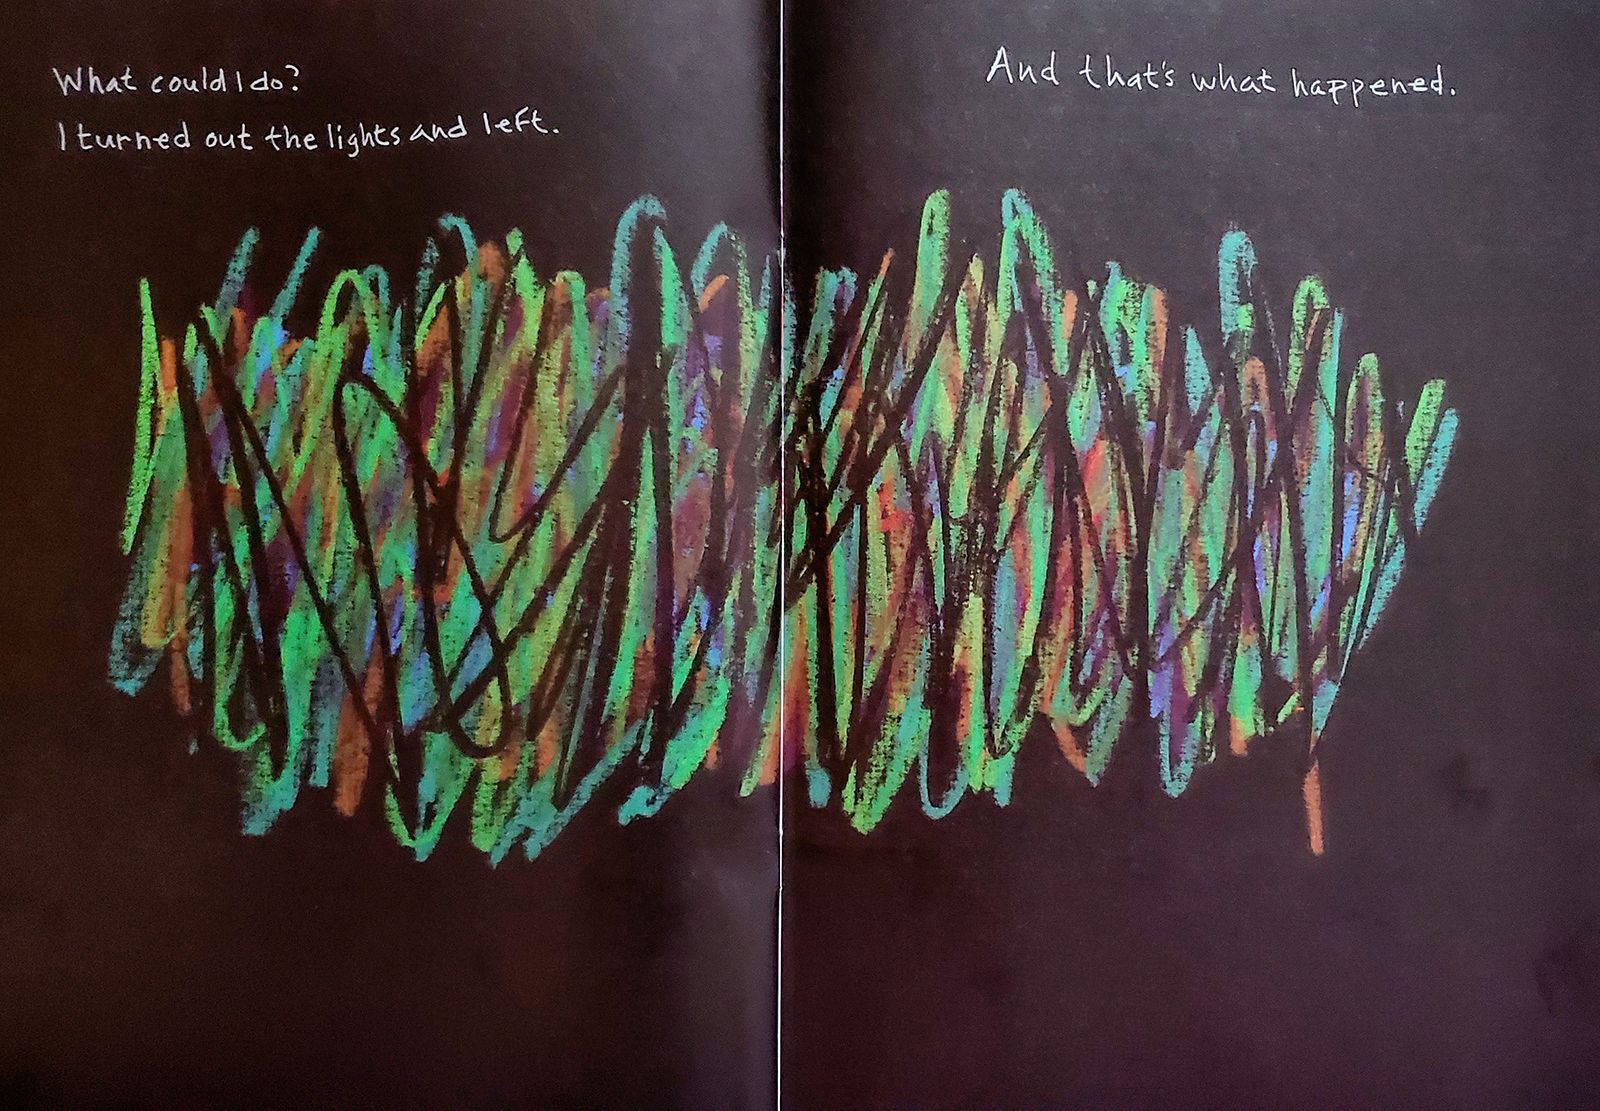 What could I do?
I turned out the lights and left.
And that's what happened.